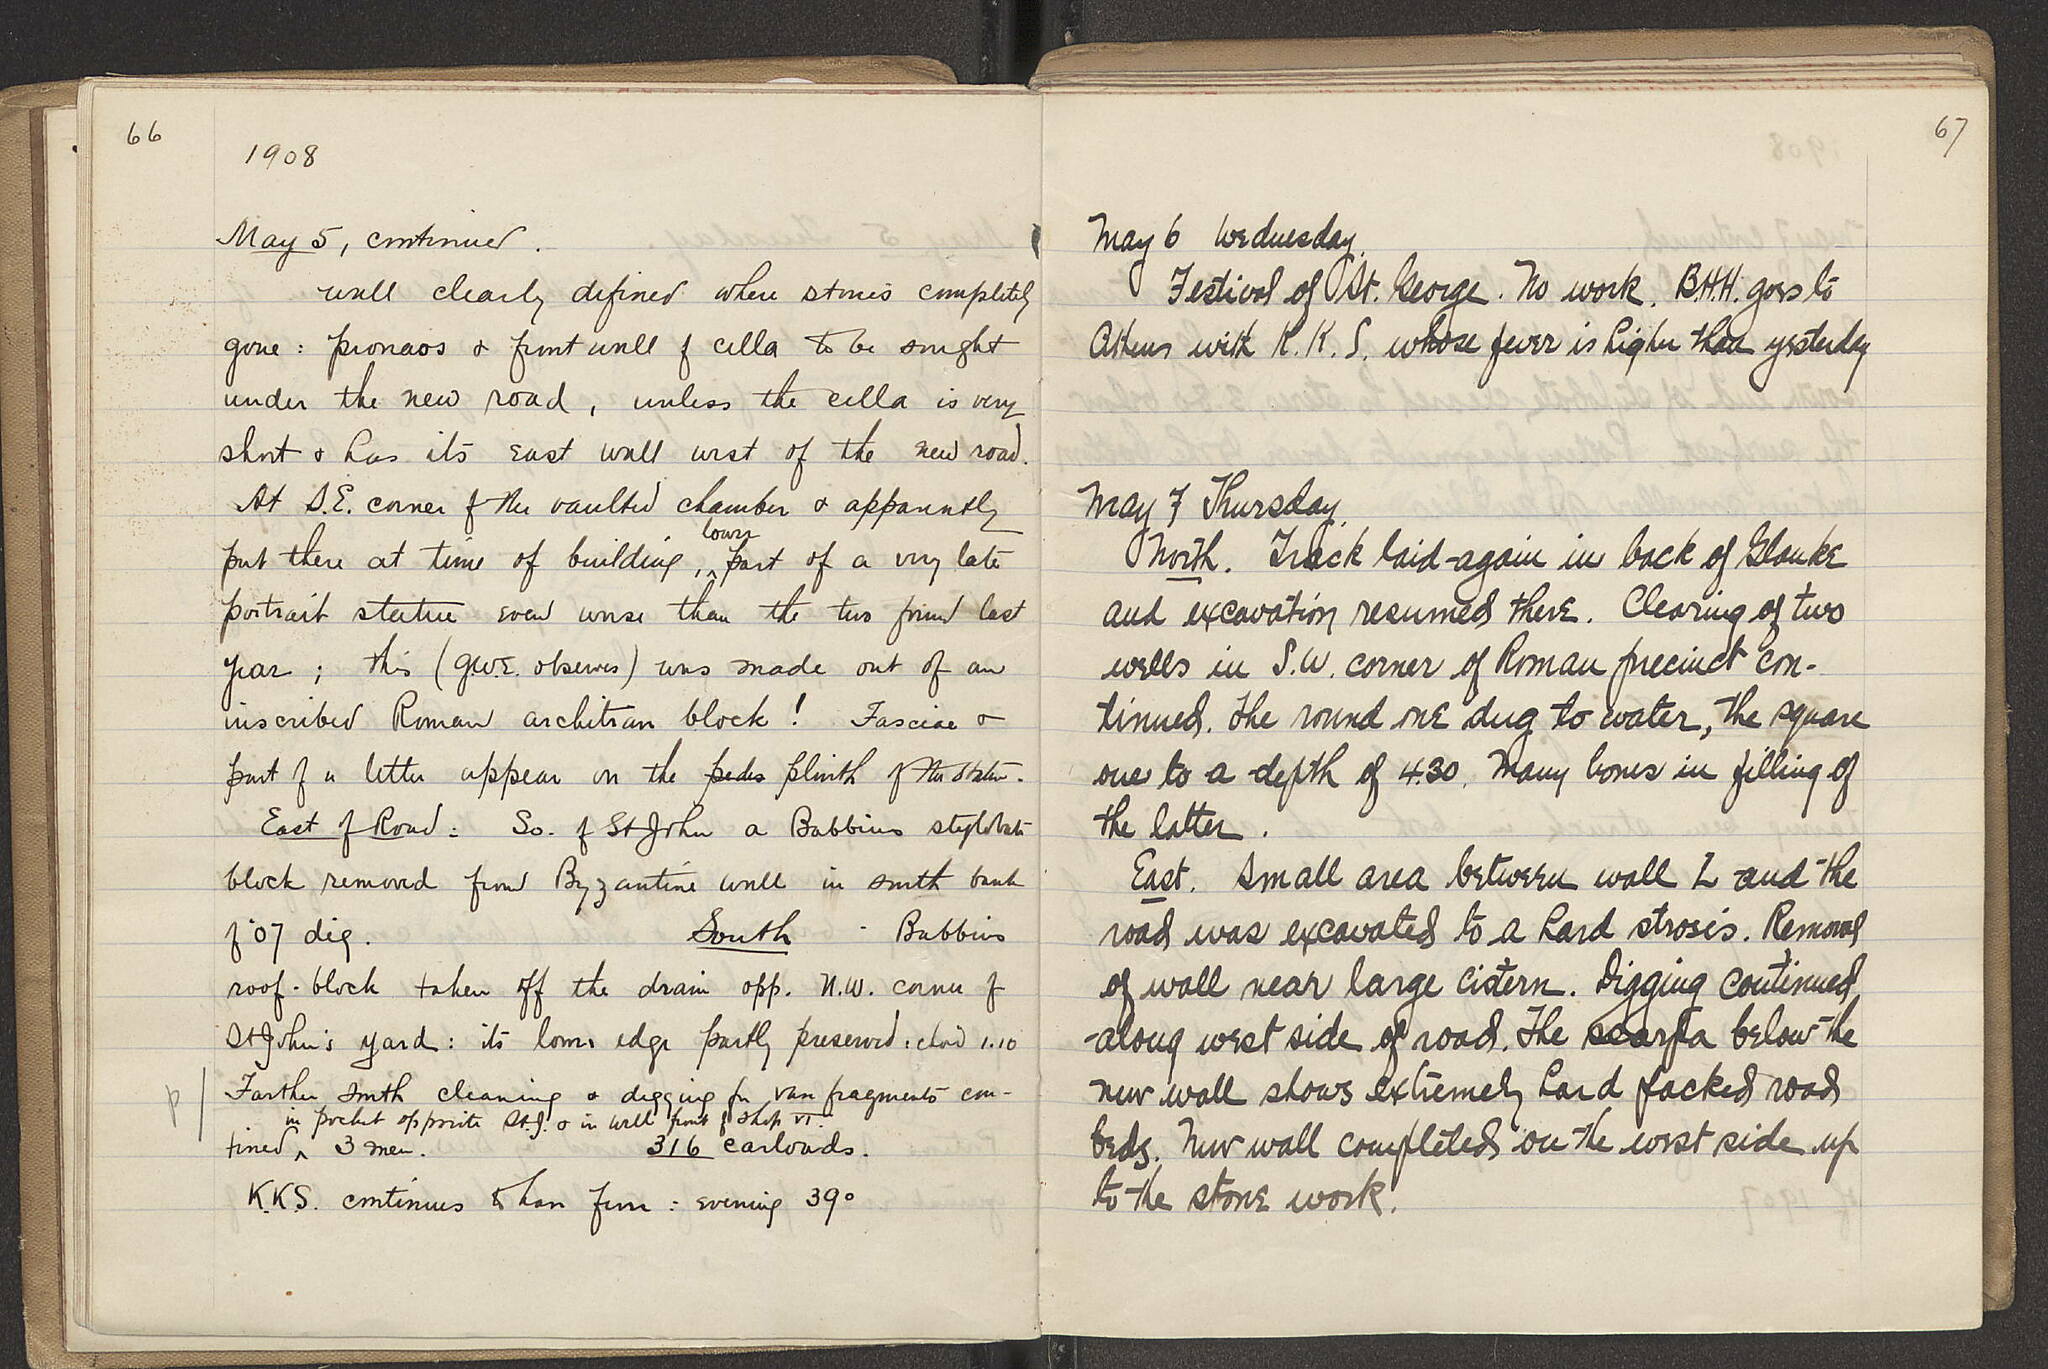 66
1908
May 5, continued.
wall clearly defined where stones completely
gone: pronaos & front wall of cella to be sought
under the new road, unless the cella is very
short & has its east wall west of the new road.
At S.E. corner of the vaulted chamber & apparently
put there at time of building, lower part of a very late
portrait statue even worse than the two found last
year; this (G.W.E. observes) was made out of an
inscribed Roman architrave block! Fasciae &
part of a letter appear on the pedes plinth of the statue.
East of Road: So. of St John a Babbius stylobate
block removed from Byzantine wall in south bank
of '07 dig. South - Babbius
roof-block taken off the drain opp. N.W. corner of
St John's yard: its lower edge partly preserved: chord 1.10
Farther south cleaning & digging for vase fragments con-
in pocket opposite St.J. & in well front of Shop VI.
tined ^ 3 men. 316 carloads.
K.K.S. continues to have fever: evening 39°
67
May 6 Wednesday.
Festival of St. George. No work. B.H.H. goes to
Athens with K.K.S. whose fever is higher than yesterday
May 7 Thursday.
North. Track laid again in back of Glauke
and excavation resumed there. Clearing of two
wells in S.W. corner of Roman precinct con-
tinued. The round one dug to water, the square
one to a depth of 4.30. Many bones in filling of
the latter.
East. Small area between wall L and the
road was excavated to a hard strosis. Removal
of wall near large cistern. Digging continued
along west side of road. The scarpa below the
new wall shows extremely hard packed road
beds. New wall completed on the west side up
to the stone work.